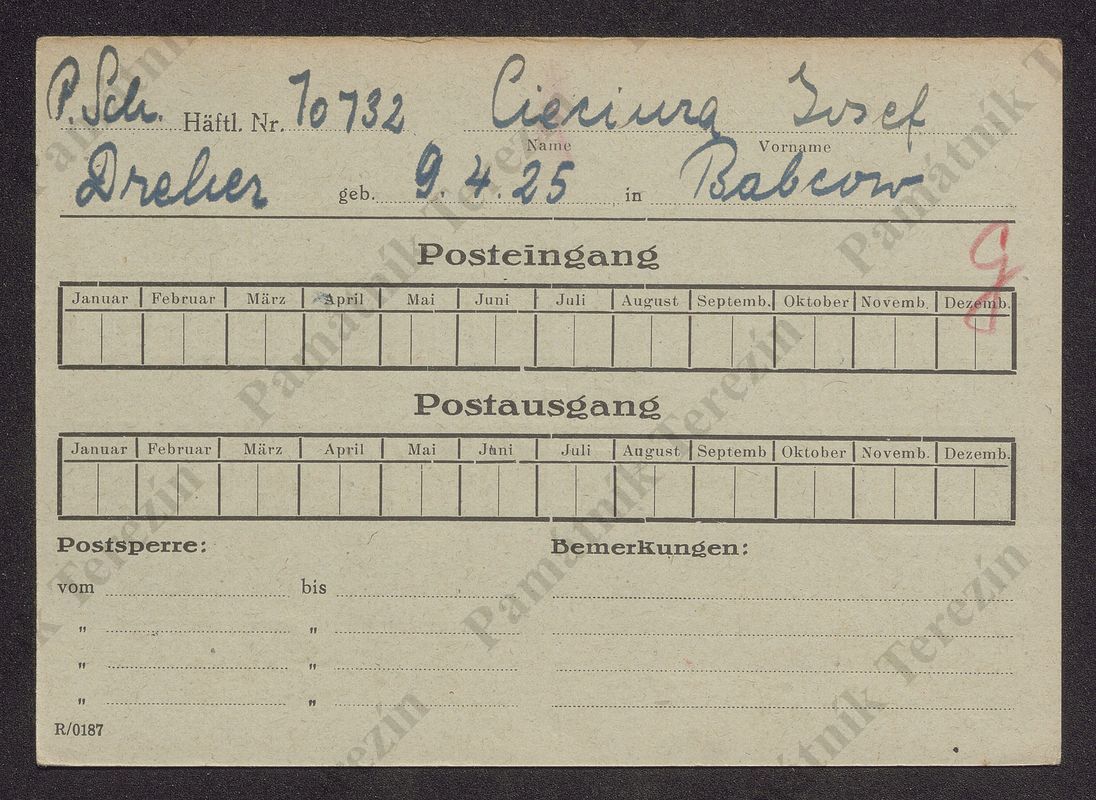 P. Sch. Häftl. Nr. 70732 Cieciura Josef
Name Vorname
Dreher geb. 9.4.25 in Babcow
Posteingang
Januar Februar März April Mai Juni Juli August Septemb. Oktober Novemb. Dezemb.
G
Postausgang
Januar Februar März April Mai Juni Juli August Septemb Oktober Novemb. Dezemb.
Postsperre: Bemerkungen:
vom bis
" "
" "
" "
R/0187
Památník Terezín